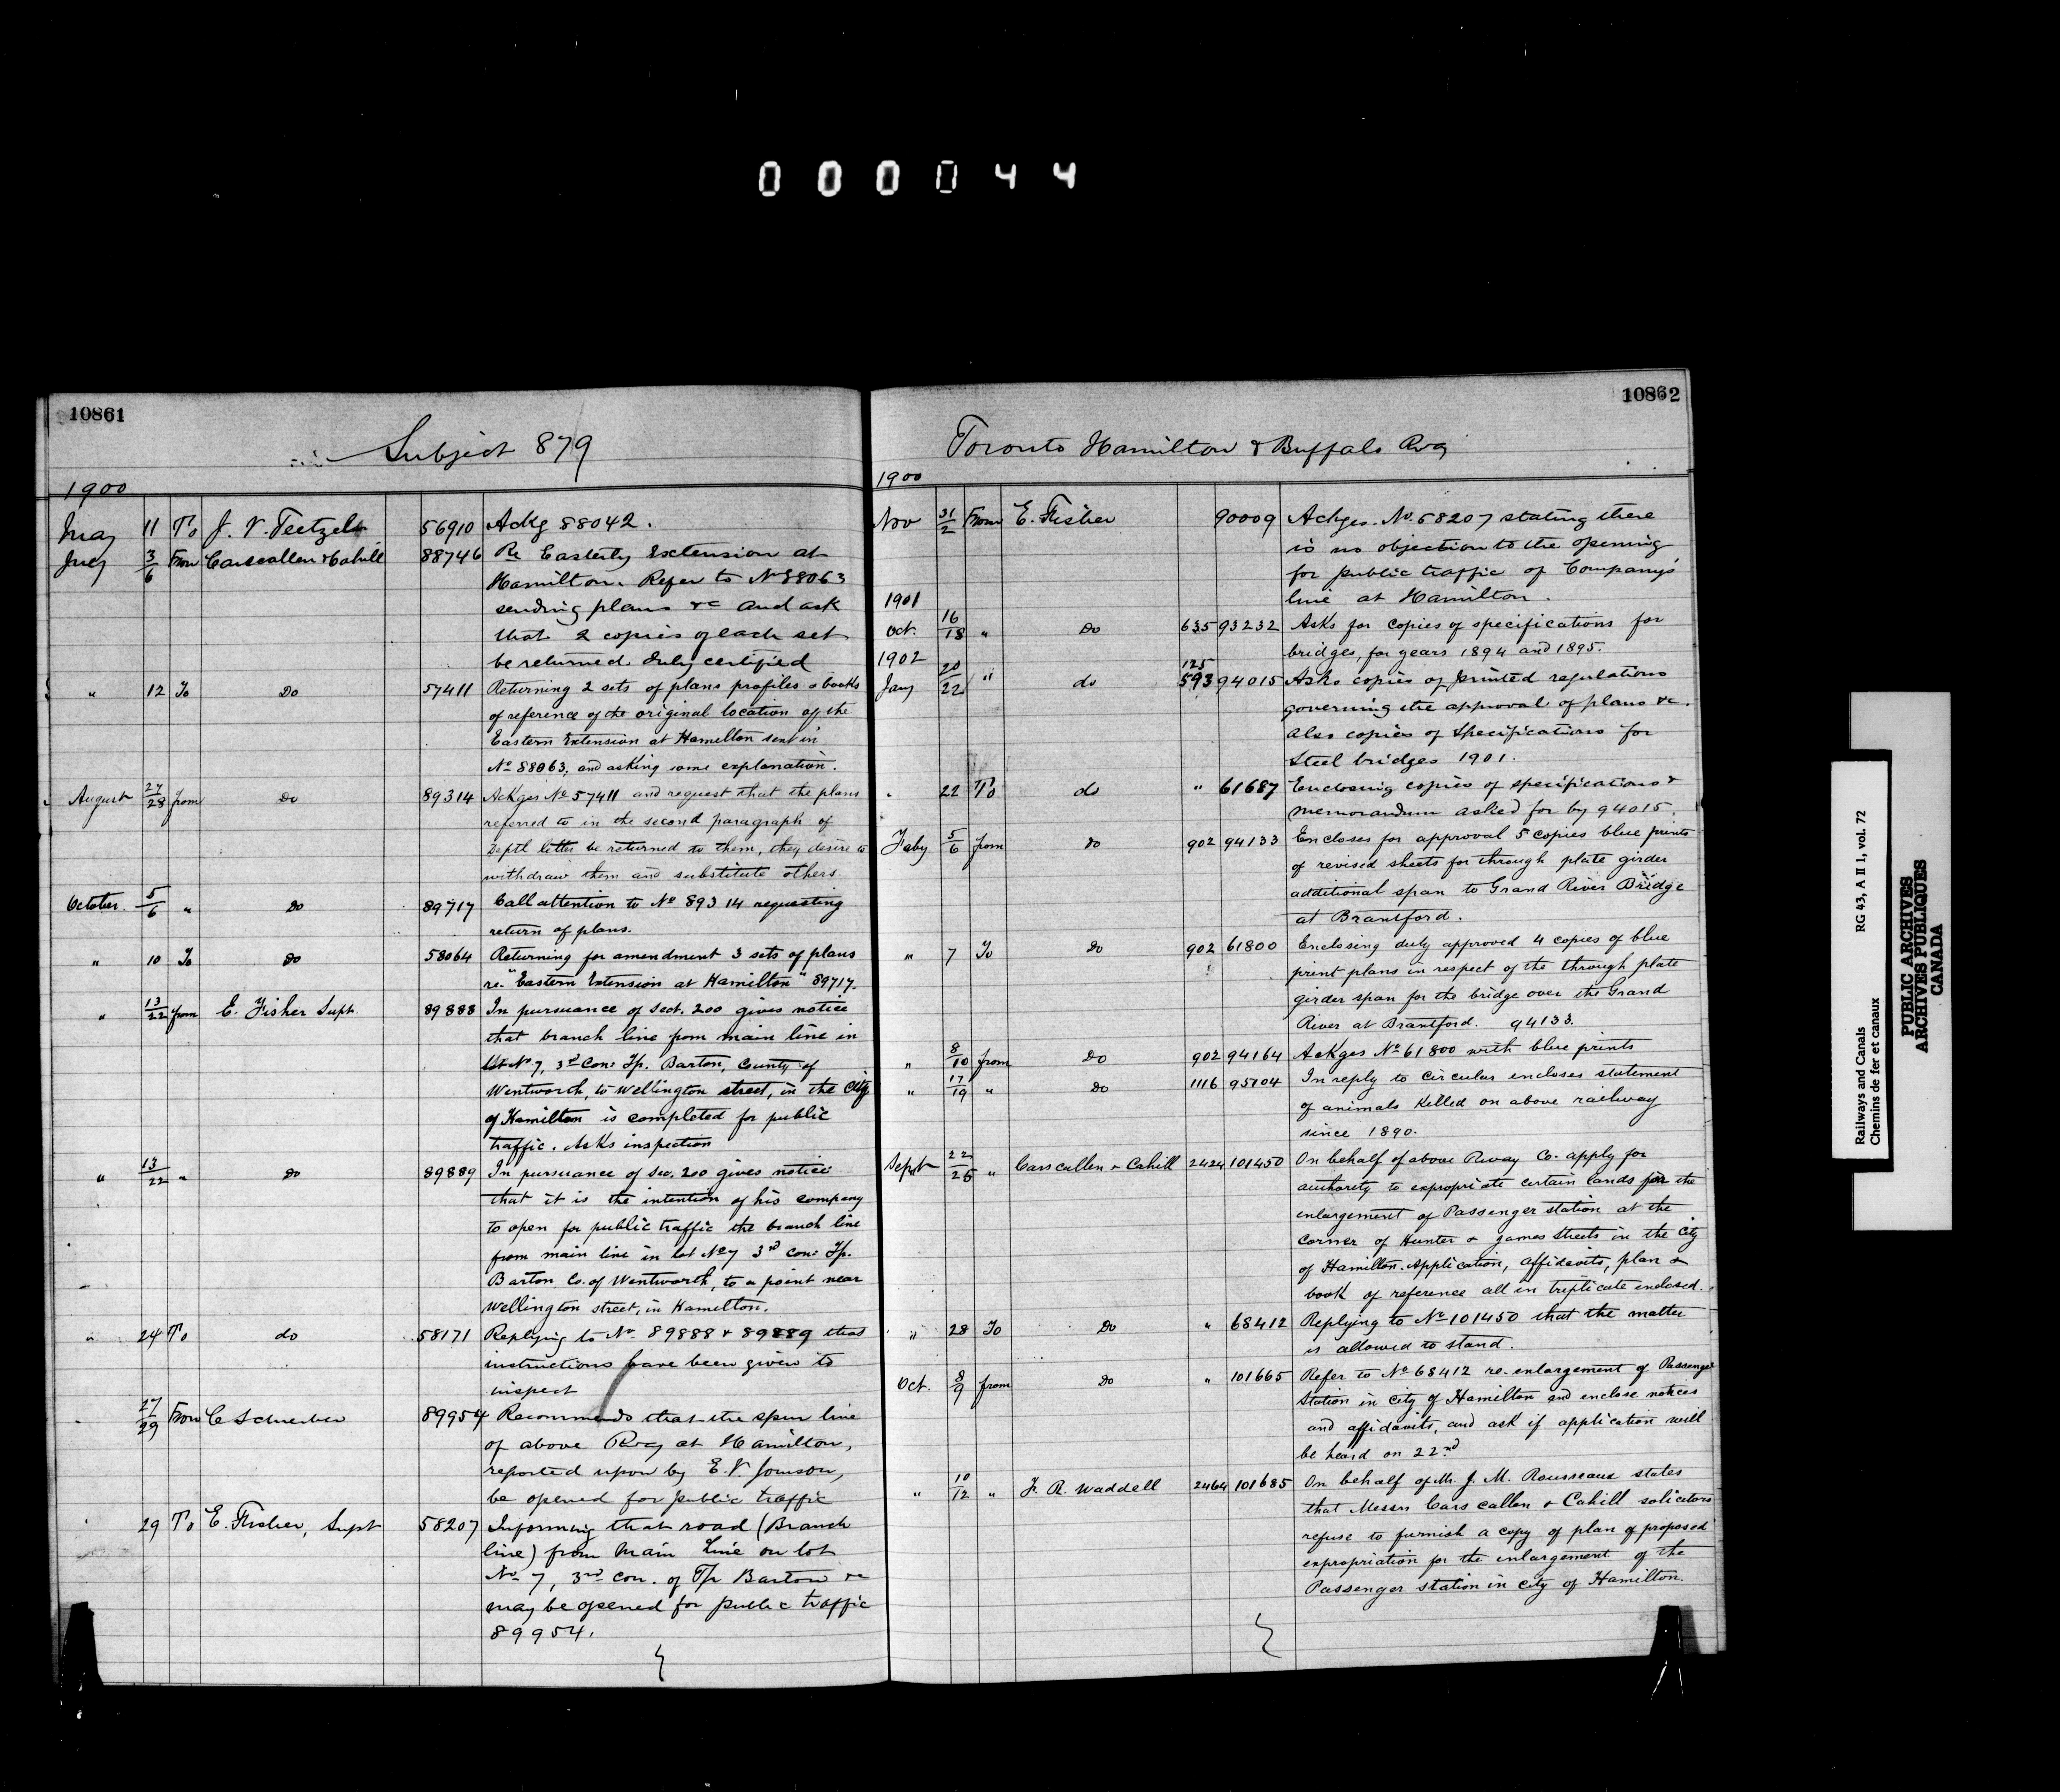 000044
10861
Subject 879
1900
May 11 To J. V. Teetzel 56910 Ackg 88042.
July 3/6 From Carscallen & Cahill 88746 Re Easterly Extension at
Hamilton. Refer to No 88063
sending plans &c and ask
that 2 copies of each set
be returned duly certified
" 12 To Do 57411 Returning 2 sets of plans profiles & books
of reference of the original location of the
Eastern Extension at Hamilton sent in
No 88063, and asking some explanation.
August 27/28 from Do 89314 Ackges No 57411 and request that the plans
referred to in the second paragraph of
Depth letter be returned to them, they desire to
withdraw them and substitute others.
October 5/6 " Do 89717 Call attention to No 89314 requesting
return of plans.
" 10 To Do 58064 Returning for amendment 3 sets of plans
re "Eastern Extension at Hamilton" 89717.
" 13/22 from E. Fisher Supt. 89888 In pursuance of Sect. 200 gives notice
that branch line from main line in
lot No 7, 3rd Con: Tp. Barton, County of
Wentworth, to Wellington street, in the City
of Hamilton is completed for public
traffic. Asks inspection
" 13/22 " Do 89889 In pursuance of Sec. 200 gives notice
that it is the intention of his company
to open for public traffic the branch line
from main line in lot No 7 3rd Con: Tp.
Barton Co. of Wentworth, to a point near
Wellington street, in Hamilton.
" 24 To do 58171 Replying to No 89888 & 89889 that
instructions have been given to
inspect
27/29 From C Schreiber 89954 Recommends that the spur line
of above Rwy at Hamilton,
reported upon by E. V. Johnson,
be opened for public traffic
29 To E. Fisher, Supt 58207 Informing that road (Branch
line) from Main Line on lot
No 7, 3rd Con. of Tp Barton &c
may be opened for public traffic
89954.
10862
Toronto Hamilton & Buffalo Rwy
1900
Nov 31/2 From E. Fisher 90009 Ackges. No. 58207 stating there
is no objection to the opening
for public traffic of Company's
line at Hamilton.
1901
Oct. 16/18 " Do 635 93232 Asks for copies of specifications for
bridges, for years 1894 and 1895.
1902
Jany 20/22 " do 125 593 94015 Asks copies of printed regulations
governing the approval of plans &c.
Also copies of Specifications for
Steel bridges 1901.
" 22 To do " 61687 Enclosing copies of specifications &
memorandum asked for by 94015.
Feby 5/6 from Do 902 94133 Encloses for approval 5 copies blue prints
of revised sheets for through plate girder
additional span to Grand River Bridge
at Brantford.
" 7 To Do 902 61800 Enclosing duly approved 4 copies of blue
print plans in respect of the through plate
girder span for the bridge over the Grand
River at Brantford. 94133.
" 8/10 from Do 902 94164 Ackges No 61800 with blue prints
" 17/19 " Do 1116 95104 In reply to circular encloses statement
of animals killed on above railway
since 1890.
Sept 22/26 " Carscallen & Cahill 2424 101450 On behalf of above Rway Co. apply for
authority to expropriate certain lands for the
enlargement of Passenger station at the
corner of Hunter & James Streets in the City
of Hamilton. Application, affidavits, plan &
book of reference all in triplicate enclosed.
" 28 To Do " 68412 Replying to No 101450 that the matter
is allowed to stand.
Oct. 8/9 from Do " 101665 Refer to No 68412 re. enlargement of Passenger
Station in City of Hamilton and enclose notices
and affidavits, and ask if application will
be heard on 22nd
" 10/12 " F. R. Waddell 2464 101685 On behalf of Mr. J. M. Rousseaux states
that Messrs Carscallen & Cahill solicitors
refuse to furnish a copy of plan of proposed
expropriation for the enlargement of the
Passenger station in city of Hamilton.
Railways and Canals RG 43, A II 1, vol. 72
Chemins de fer et canaux
PUBLIC ARCHIVES
ARCHIVES PUBLIQUES
CANADA